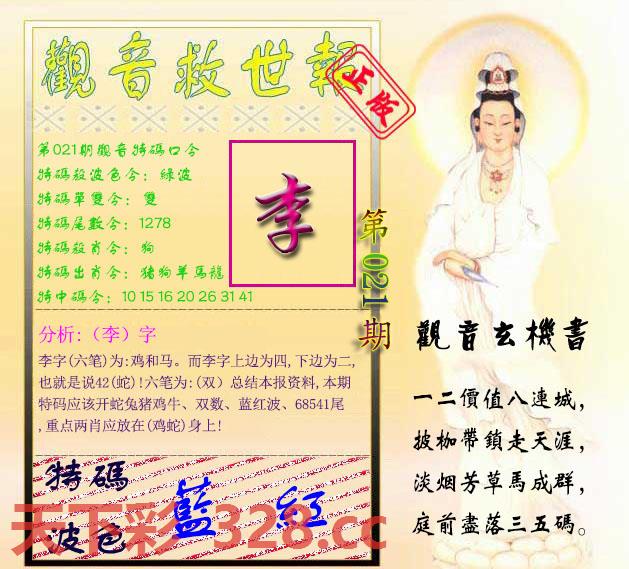 觀音救世報
正版
第021期觀音特碼口令
特碼殺波色令：綠波
特碼單雙令：雙
特碼尾數令：1278
特碼殺肖令：狗
特碼出肖令：猪狗羊馬龍
特中碼令：10 15 16 20 26 31 41
李
第021期
分析:（李）字
李字(六笔)为:鸡和马。而李字上边为四,下边为二,
也就是说42(蛇)!六笔为:(双）总结本报资料,本期
特码应该开蛇兔猪鸡牛、双数、蓝红波、68541尾
,重点两肖应放在(鸡蛇)身上!
特碼
波色
藍 紅
天下彩 1328.cc
觀音玄機書
一二價值八連城，
披枷帶鎖走天涯，
淡烟芳草馬成群，
庭前盡落三五碼。